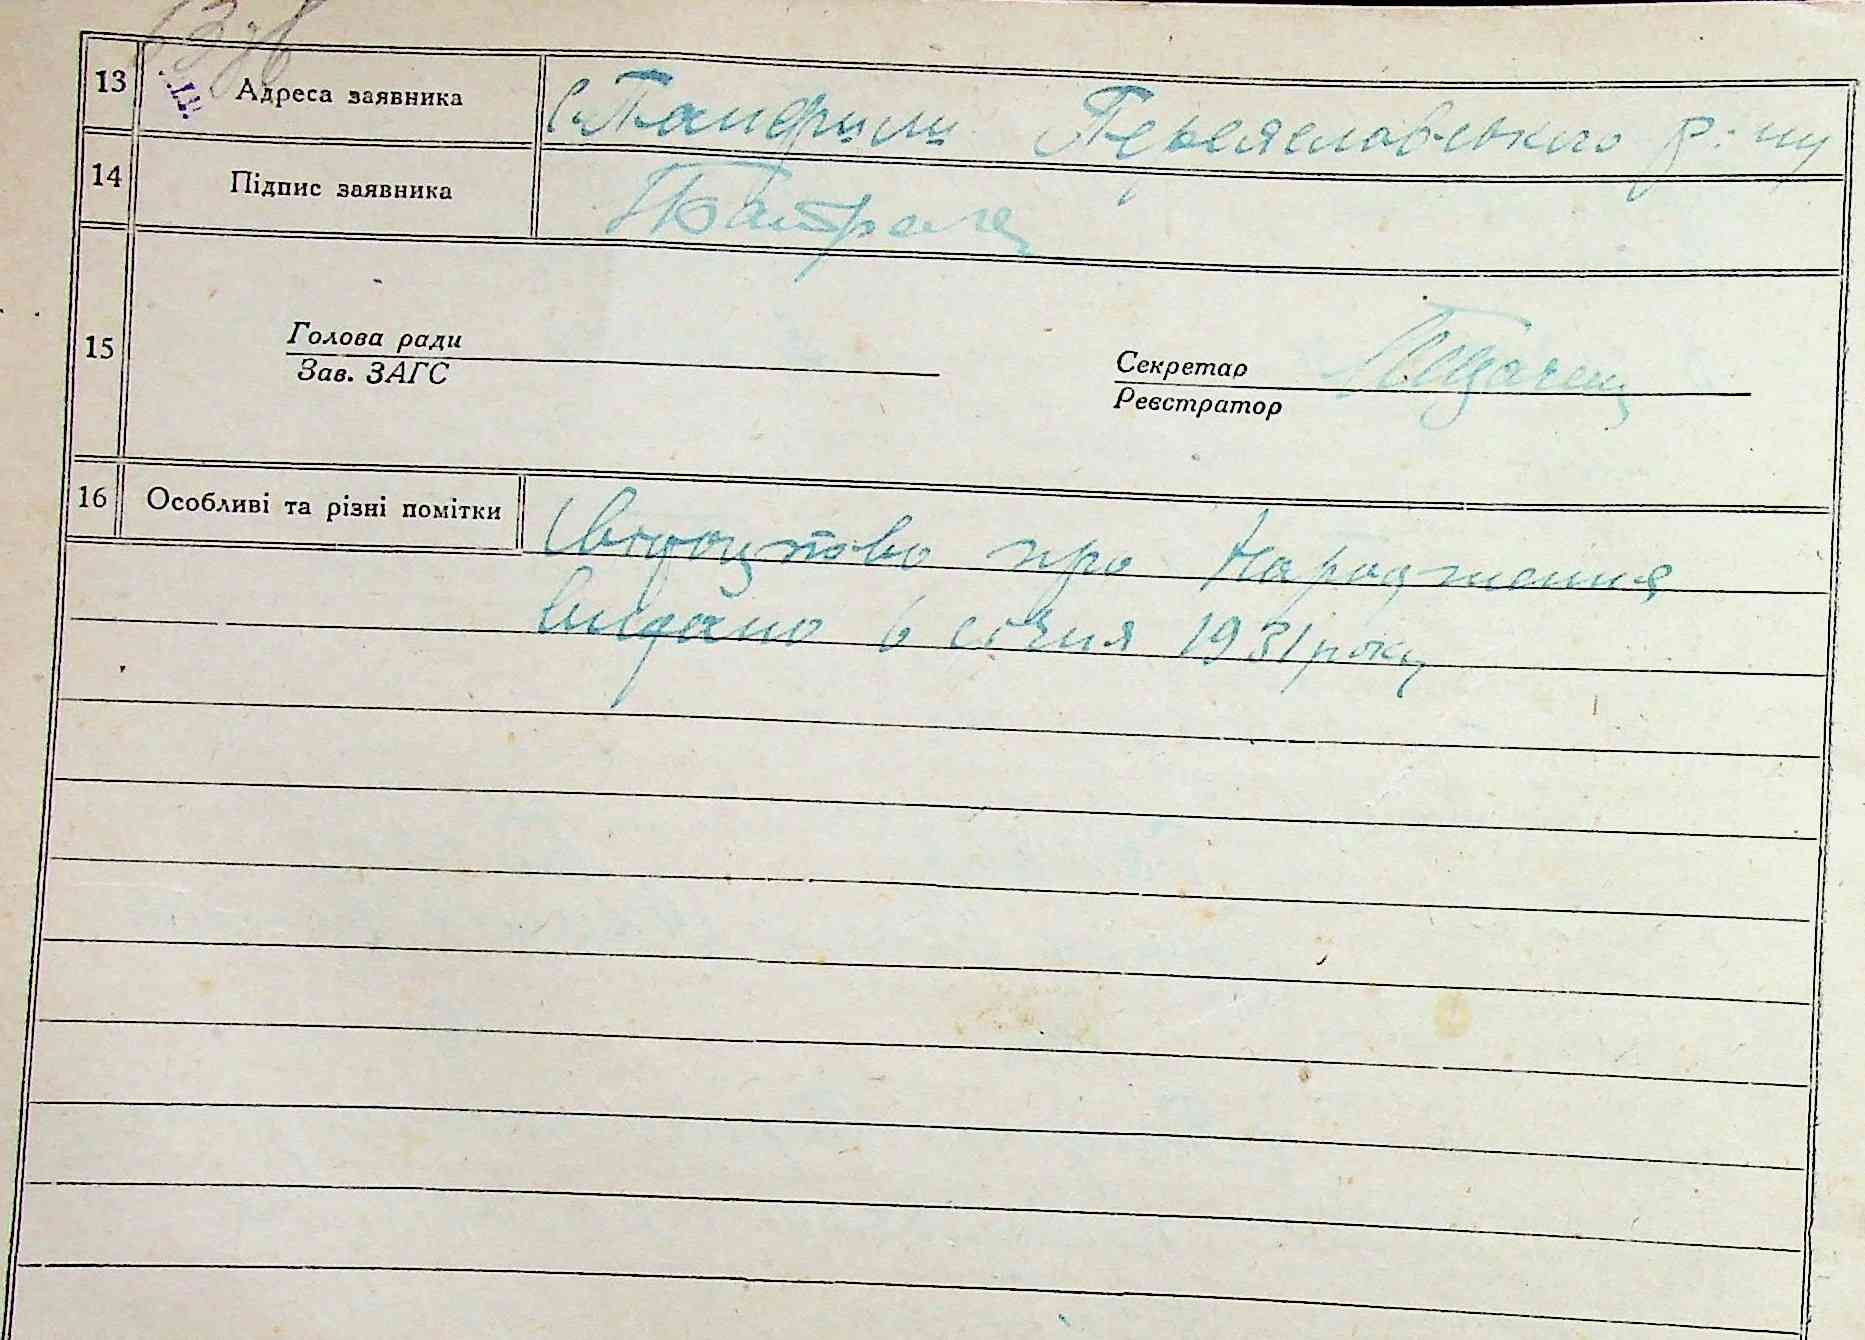 13 Адреса заявника с. Панфили Переяславського р-ну
14 Підпис заявника
15 Голова ради
Зав. ЗАГС
Секретар
Реєстратор
16 Особливі та різні помітки Свідоцтво про народження
видано 6 січня 1931 року